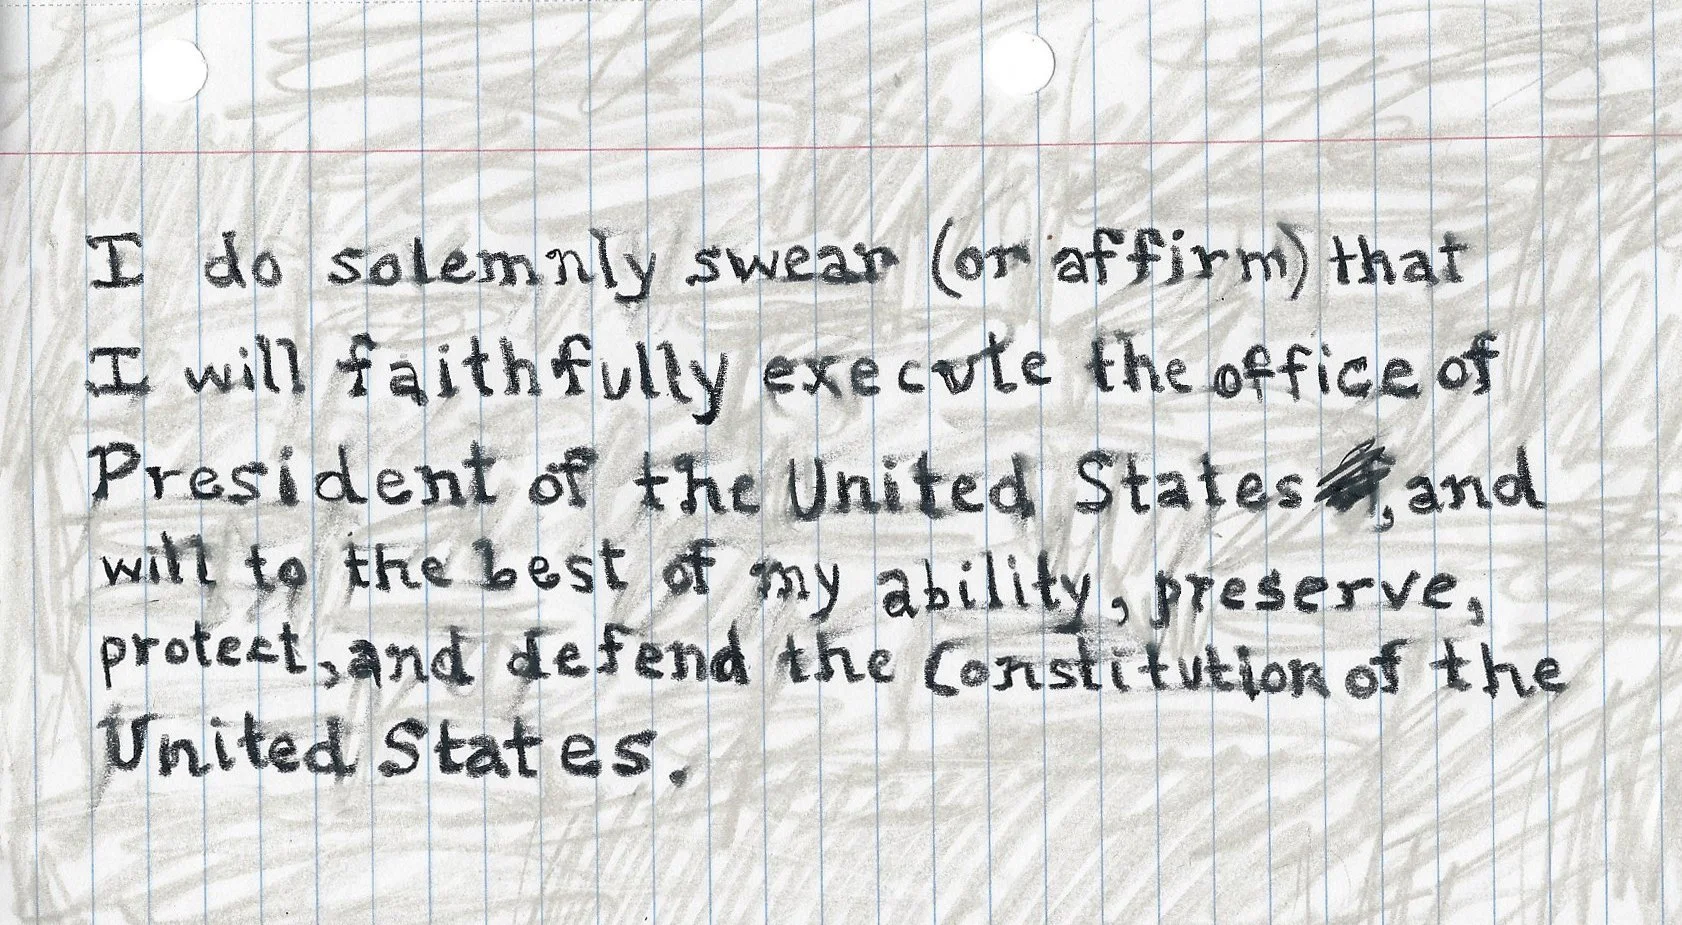 I do solemnly swear (or affirm) that
I will faithfully execute the office of
President of the United States, and
will to the best of my ability, preserve,
protect, and defend the Constitution of the
United States.